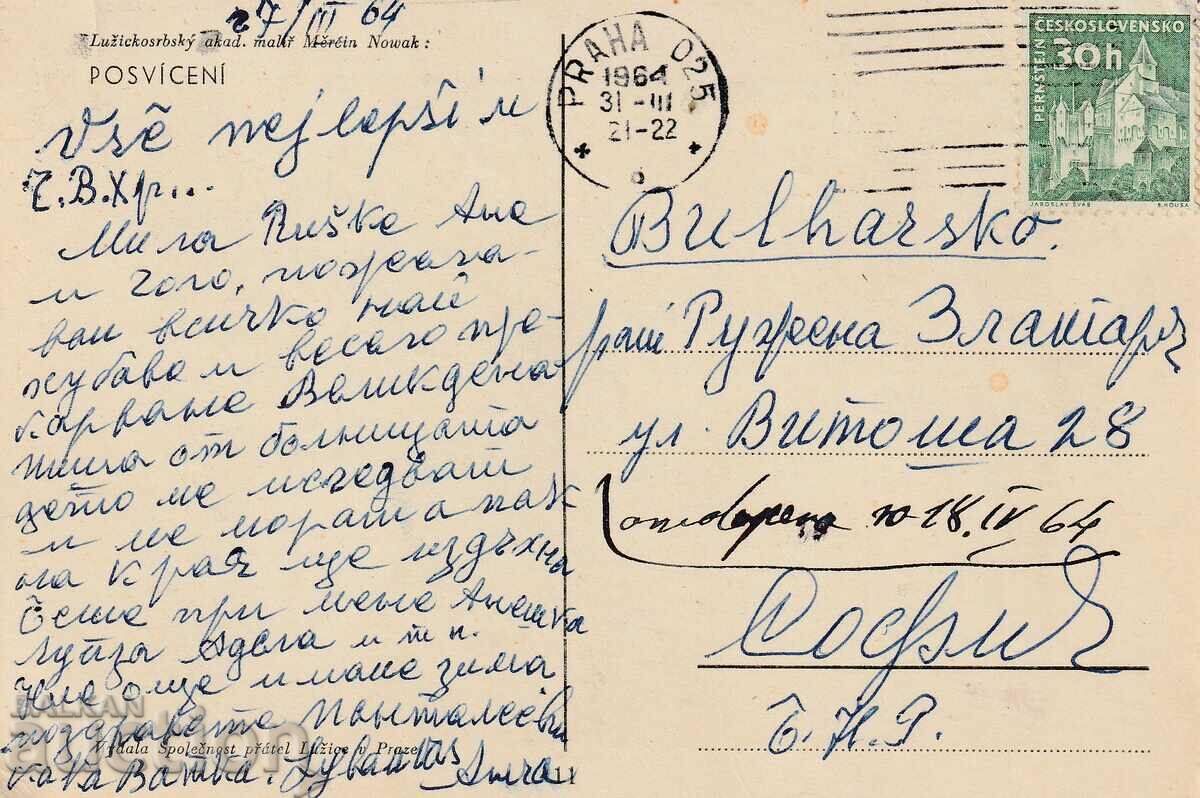 27/III 64
Lužickosrbský akad. malíř Měrčin Nowak:
POSVÍCENÍ
Vsě nejlepší u
Č.В.Хр...
Мила Ruška Ана
и Чочо, пожела-
вам всичко най
хубаво и весело пре-
карване Великдена
пиша от болницата
дето ме изследват
и ме морат а пак
на края ще издъхна
беше при мене Анешка
Адела и т н.
Ние още имаме зима
поздравете Панталееви
Кака Ватка.
Vydala Společnost přátel Lužice v Praze
PRAHA 025
1964
31-III
21-22
ČESKOSLOVENSKO
30h
PERNŠTEJN
JAROSLAV ŠVÁB
B. HOUSA
Bulharsko.
Ружена Златаря
ул. Витоша 28
отговорено на 18.IV 64
София
Б.Н.Р.
BALKAN
auction